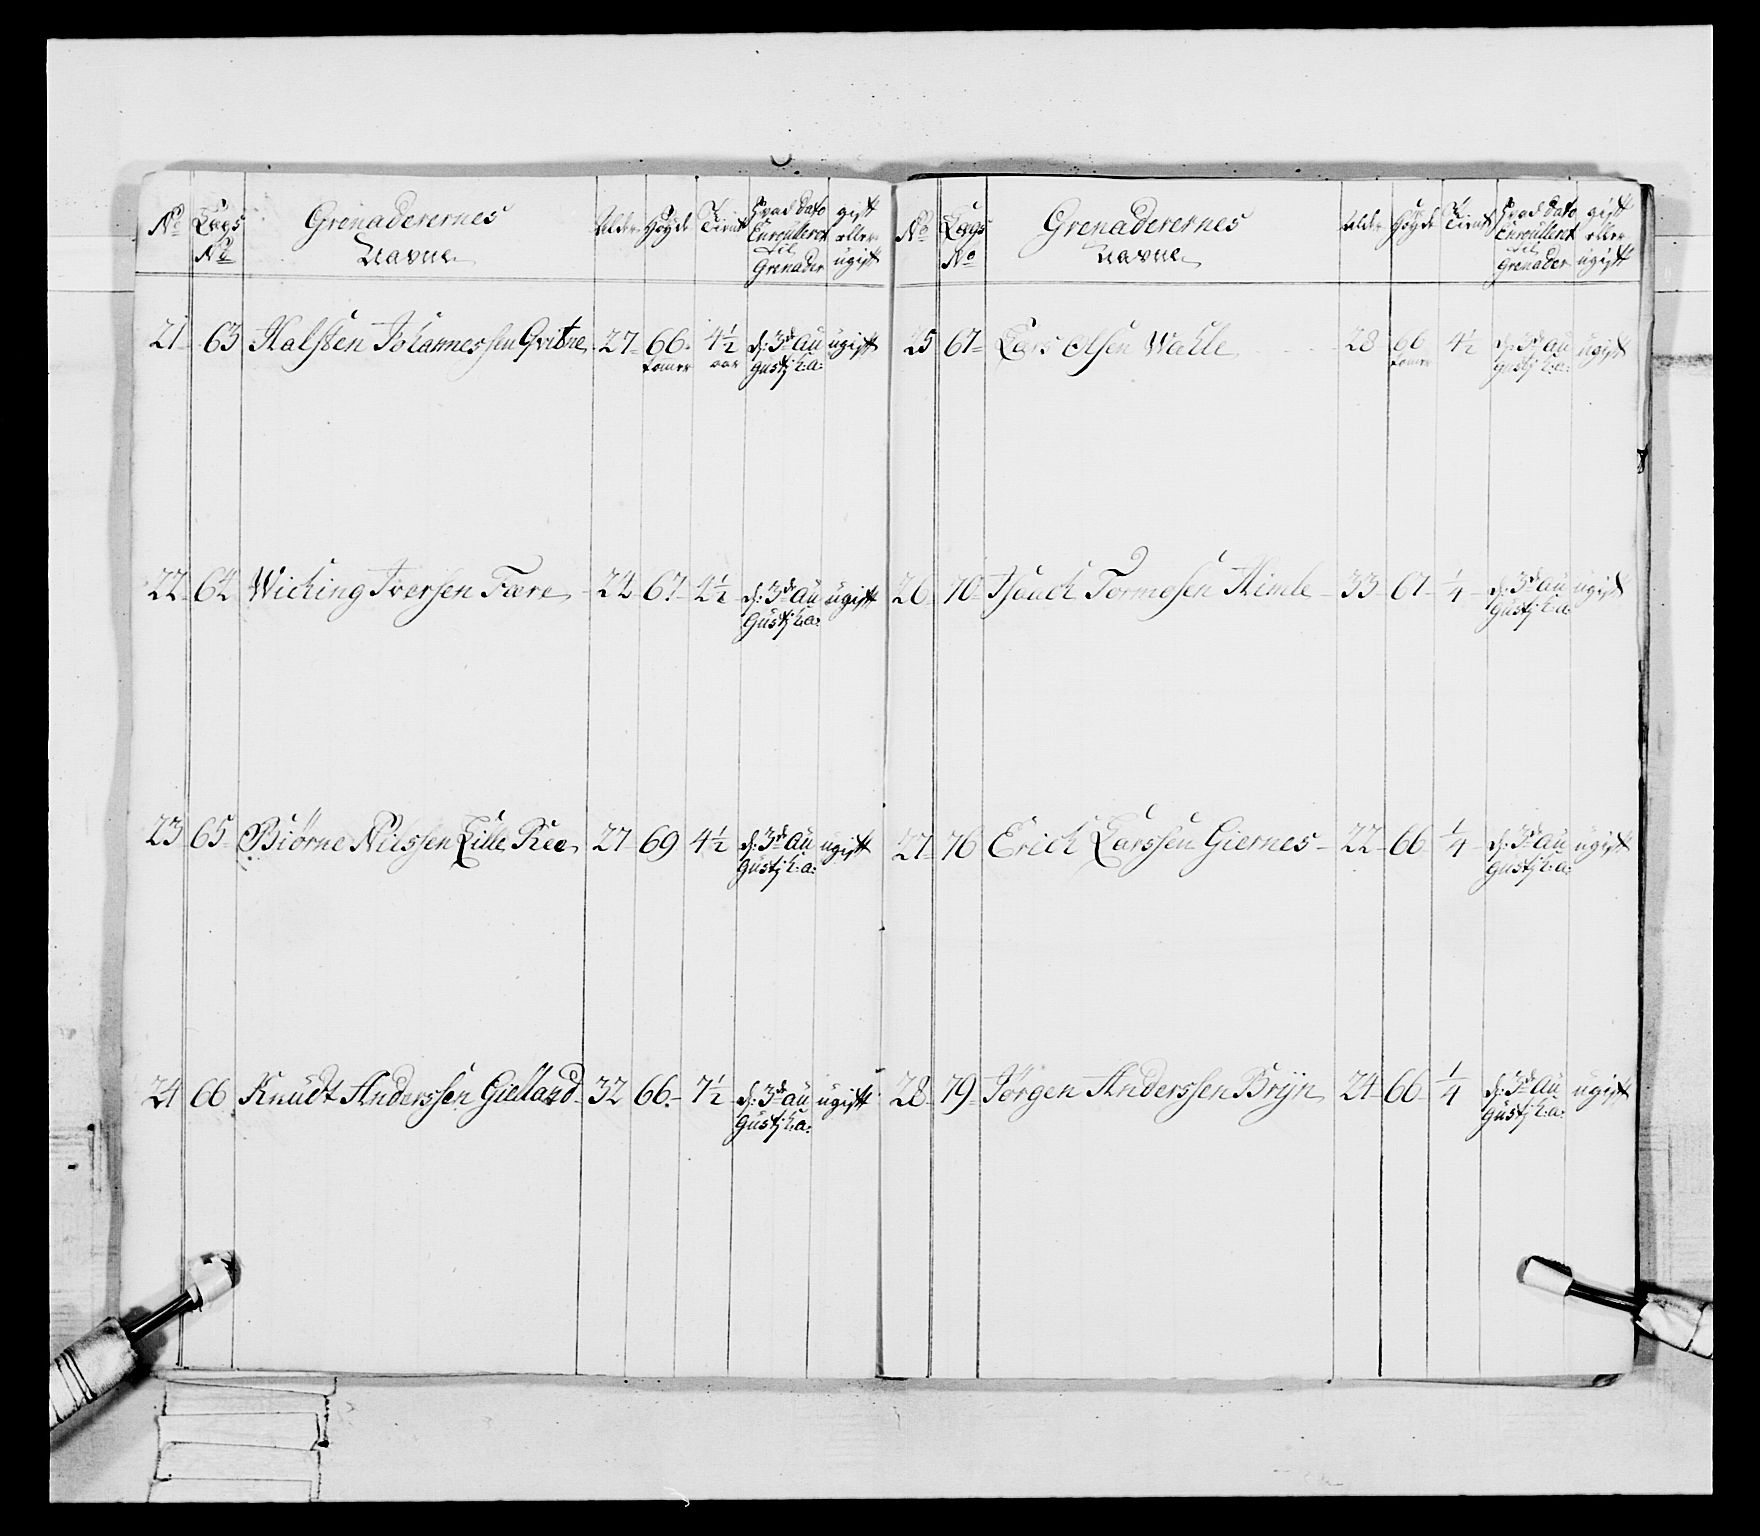 No Lægs No Grenaderernes Navne Alder Høyde Tienst Hvad Dato Enroulleret til Grenader gift eller ugift
21 63 Halsten Johannessen Gvitne 27 66 tomer 4½ aar d: 3de Augustj h:a: ugift
22 64 Wiching Iversen Fære 24 67 4½ d: 3de Augustj h:a: ugift
23 65 Biørne Nilssen Lille Ree 27 69 4½ d: 3de Augustj h:a: ugift
24 66 Knudt Anderssen Gielland 32 66 7½ d: 3de Augustj h:a: ugift
No Lægs No Grenaderernes Navne Alder Høyde Tienst Hvad Dato Enroullert til Grenader gift eller ugift
25 67 Lars Olsen Wahle 28 66 tomer 4½ d: 3de Augustj h:a: ugift
26 70 Isaach Tormosen Himle 33 67 ¼ d: 3de Augustj h:a: ugift
27 76 Erich Larssen Giernes 22 66 ¼ d: 3de Augustj h:a: ugift
28 79 Jørgen Anderssen Brÿn 24 66 ¼ d: 3de Augustj h:a: ugift